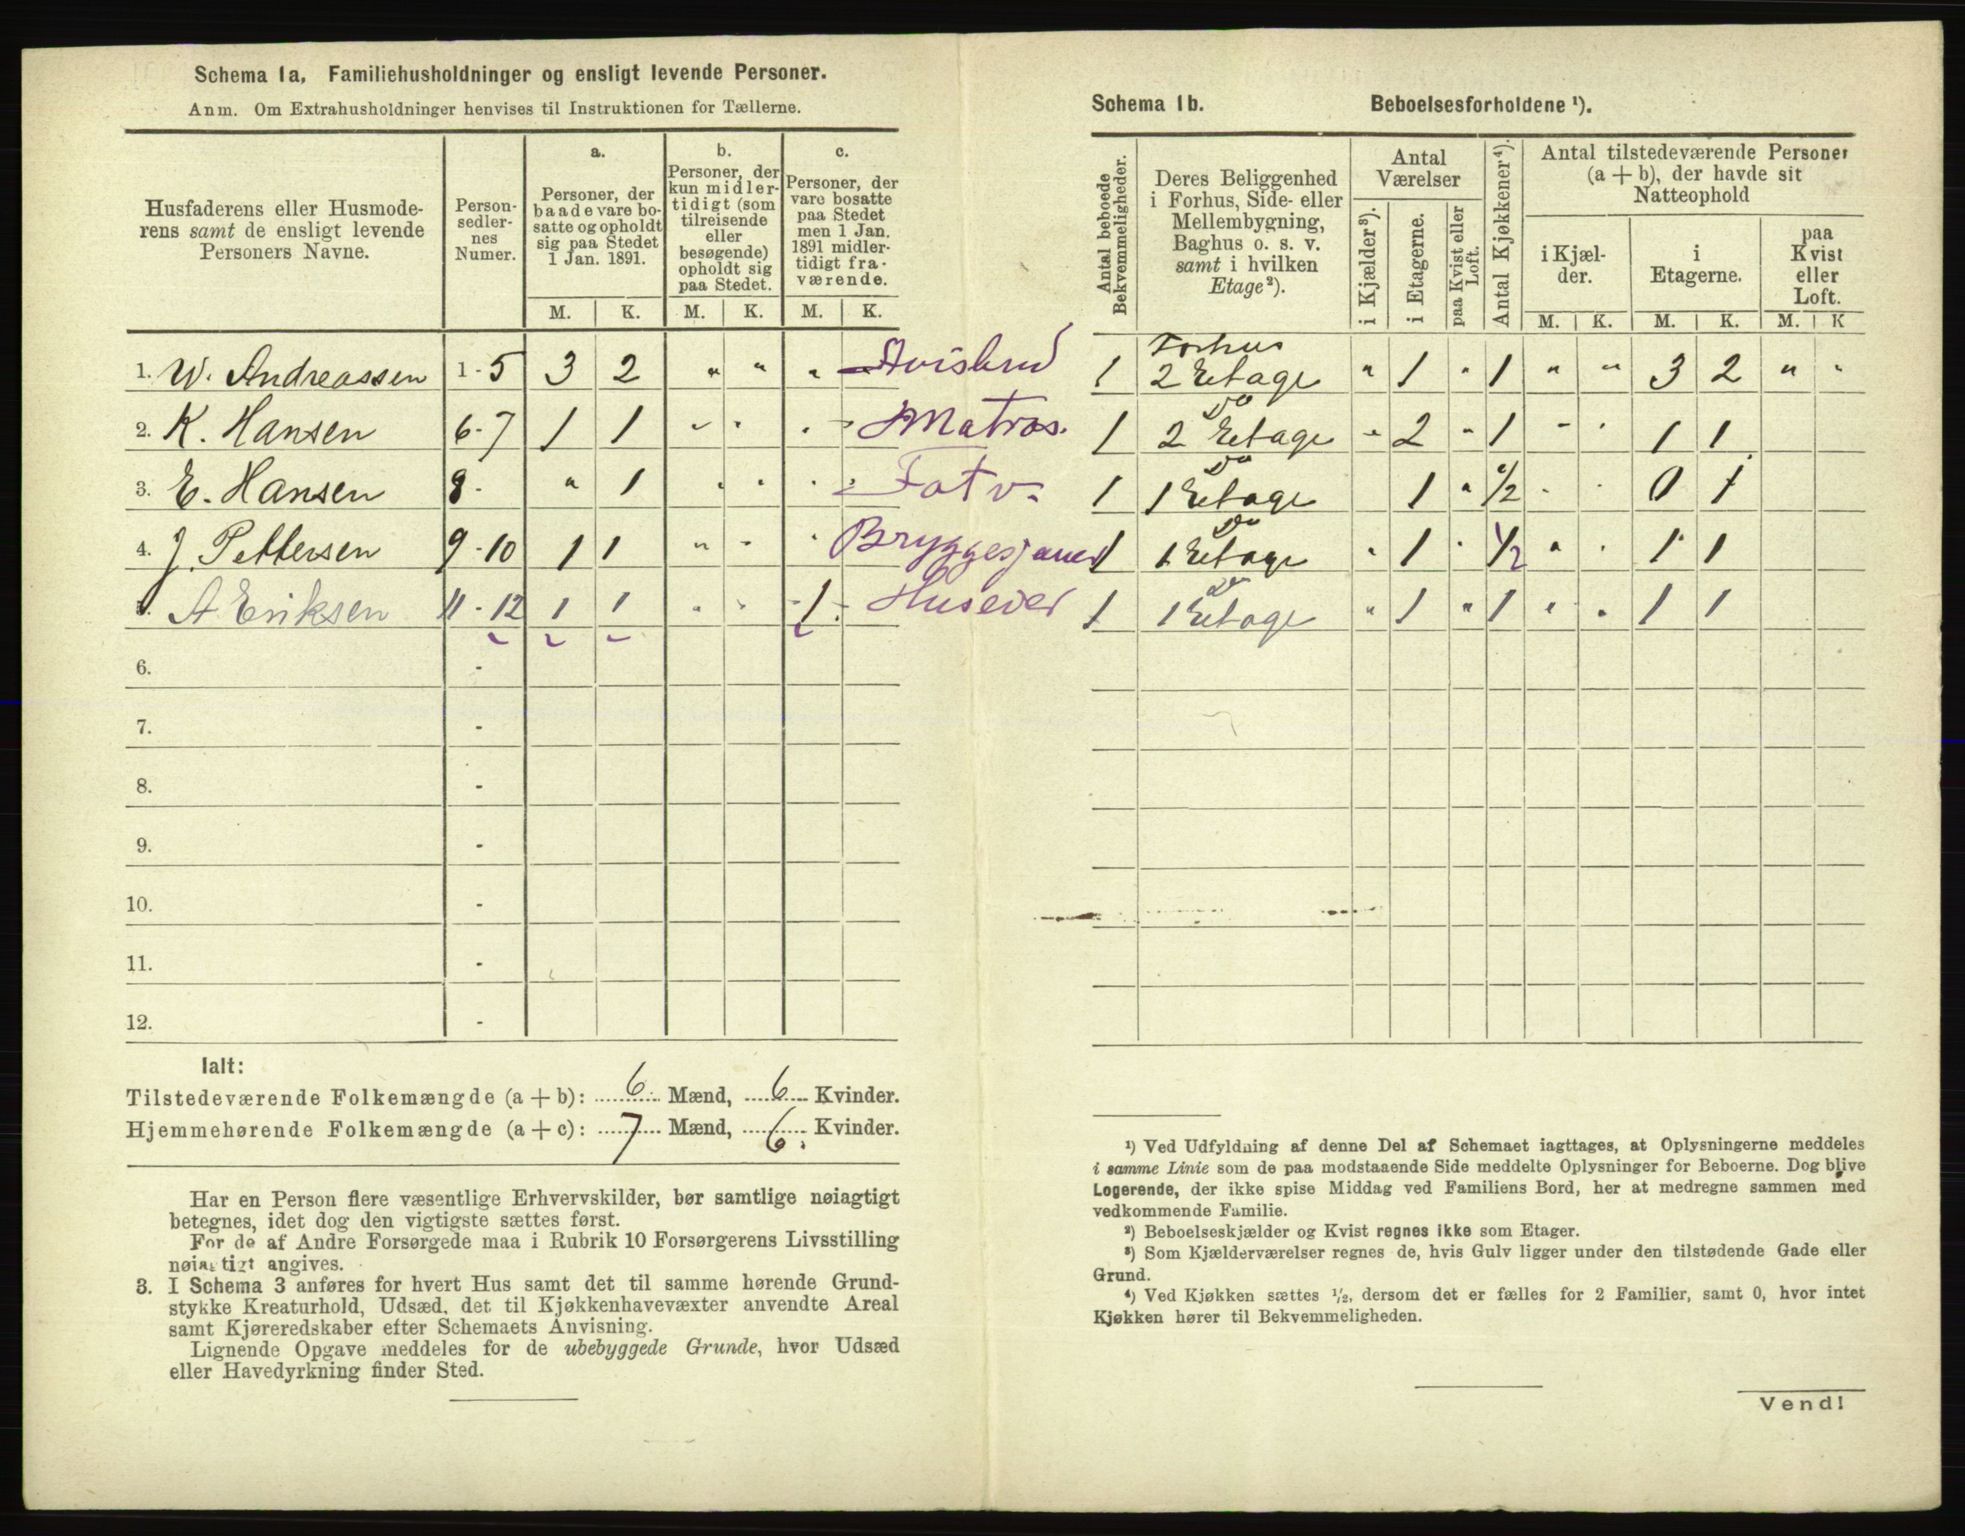 Schema 1a, Familiehusholdninger og ensligt levende Personer.
Anm. Om Extrahusholdninger henvises til Instruktionen for Tællerne.
Husfaderens eller Husmode-
rens samt de ensligt levende
Personers Navne.
Person-
sedler-
nes
Numer.
a.
Personer, der
baade vare bo-
satte og opholdt
sig paa Stedet
1 Jan. 1891.
b.
Personer, der
kun midler-
tidigt (som
tilreisende
eller
besøgende)
opholdt sig
paa Stedet.
c.
Personer, der
vare bosatte
paa Stedet
men 1 Jan.
1891 midler-
tidigt fra-
værende.
M. K. M. K. M. K.
1. W. Andreassen 1-5 3 2 " " " Avisbud
2. K. Hansen 6-7 1 1 " " " Matros.
3. E. Hansen 8- " 1 " " " Fatv.
4. J. Pettersen 9-10 1 1 " " " Bryggesjauer
5. A Eriksen 11-12 1 1 " " 1 - Huseier
6. -
7. -
8. -
9. -
10. -
11. -
12. -
Ialt:
Tilstedeværende Folkemængde (a + b): 6 Mænd, 6 Kvinder.
Hjemmehørende Folkemængde (a + c): 7 Mænd, 6. Kvinder.
Har en Person flere væsentlige Erhvervskilder, bør samtlige nøiagtigt
betegnes, idet dog den vigtigste sættes først.
For de af Andre Forsørgede maa i Rubrik 10 Forsørgerens Livsstilling
nøiagtigt angives.
3. I Schema 3 anføres for hvert Hus samt det til samme hørende Grund-
stykke Kreaturhold, Udsæd, det til Kjøkkenhavevæxter anvendte Areal
samt Kjøreredskaber efter Schemaets Anvisning.
Lignende Opgave meddeles for de ubebyggede Grunde, hvor Udsæd
eller Havedyrkning finder Sted.
Schema 1b. Beboelsesforholdene ¹).
Antal beboede
Bekvemmeligheder.
Deres Beliggenhed
i Forhus, Side- eller
Mellembygning,
Baghus o. s. v.
samt i hvilken
Etage²).
Antal
Værelser
i Kjælder³).
i Etagerne.
paa Kvist eller
Loft.
Antal Kjøkkener⁴).
Antal tilstedeværende Personer
(a + b), der havde sit
Natteophold
i Kjæl-
der.
i
Etagerne.
paa
Kvist
eller
Loft.
M. K. M. K. M. K
Forhus
1 2 Etage " 1 " 1 " " 3 2 " "
Do
1 2 Etage " 2 " 1 " " 1 1
Do
1 1 Etage 1 " 1/2 " " 0 1
Do
1 1 Etage " 1 " 1/2 " " 1 1
Do
1 1 Etage " 1 " 1 " " 1 1
¹) Ved Udfyldning af denne Del af Schemaet iagttages, at Oplysningerne meddeles
i samme Linie som de paa modstaaende Side meddelte Oplysninger for Beboerne. Dog blive
Logerende, der ikke spise Middag ved Familiens Bord, her at medregne sammen med
vedkommende Familie.
²) Beboelseskjælder og Kvist regnes ikke som Etager.
³) Som Kjælderværelser regnes de, hvis Gulv ligger under den tilstødende Gade eller
Grund.
⁴) Ved Kjøkken sættes ½, dersom det er fælles for 2 Familier, samt 0, hvor intet
Kjøkken hører til Bekvemmeligheden.
Vend!